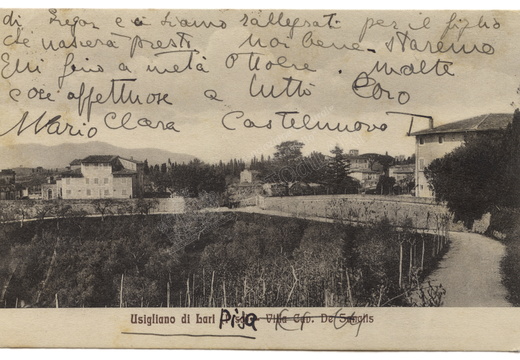 di Gregor e ci siamo rallegrati per il figlio
che nascerà presti noi bene. Staremo
Qui fino a metà Ottobre. Molte
cose affettuose a tutti Loro
Mario Clara Castelnuovo T
Usigliano di Lari Pisa Villa Cav. De